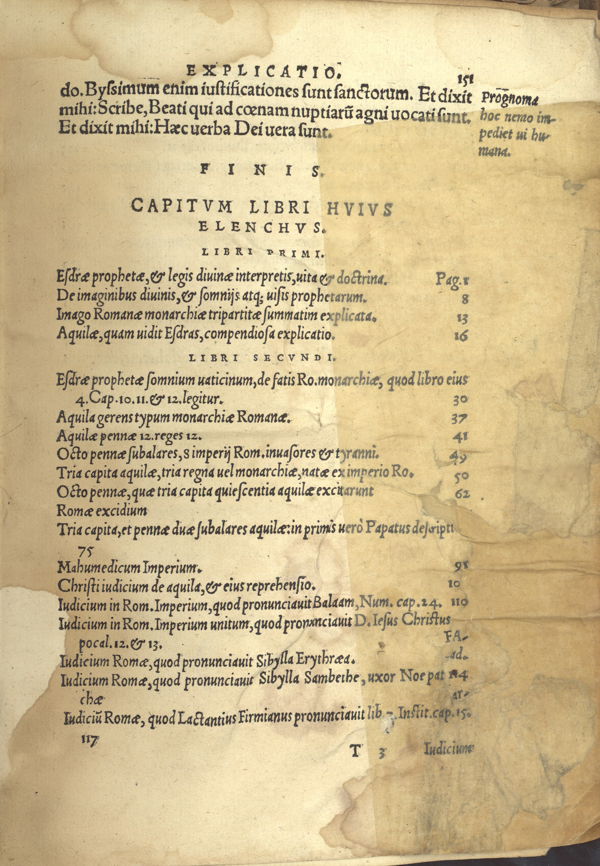 EXPLICATIO. 151
do. Byſsimum enim iuſtificationes ſunt ſanctorum. Et dixit
mihi: Scribe, Beati qui ad cœnam nuptiarũ agni uocati ſunt.
Et dixit mihi: Hæc uerba Dei uera ſunt.
Prognoma
hoc nemo im-
pediet ui hu-
mana.
FINIS.
CAPITVM LIBRI HVIVS
ELENCHVS.
LIBRI PRIMI.
Eſdræ prophetæ, & legis diuinæ interpretis, uita & doctrina. Pag. 1
De imaginibus diuinis, & ſomnijs atq; uiſis prophetarum. 8
Imago Romanæ monarchiæ tripartitæ ſummatim explicata. 13
Aquilæ, quam uidit Eſdras, compendioſa explicatio. 16
LIBRI SECVNDI.
Eſdræ prophetæ ſomnium uaticinum, de fatis Ro. monarchiæ, quod libro eius
4. Cap. 10. 11. & 12. legitur. 30
Aquila gerens typum monarchiæ Romanæ. 37
Aquilæ pennæ 12. reges 12. 41
Octo pennæ ſubalares, 8 imperij Rom. inuaſores & tyranni. 49
Tria capita aquilæ, tria regna uel monarchiæ, natæ ex imperio Ro. 50
Octo pennæ, quæ tria capita quieſcentia aquilæ excitarunt 62
Romæ excidium
Tria capita, et pennæ duæ ſubalares aquilæ: in primis uerò Papatus deſcripti
75
Mahumedicum Imperium. 91
Chriſti iudicium de aquila, & eius reprehenſio. 10
Iudicium in Rom. Imperium, quod pronunciauit Balaam, Num. cap. 24. 110
Iudicium in Rom. Imperium unitum, quod pronunciauit D. Ieſus Chriſtus
pocal. 12. & 13.
Iudicium Romæ, quod pronunciauit Sibylla Erythræa.
Iudicium Romæ, quod pronunciauit Sibylla Sambethe, uxor Noe pat
chæ
Iudiciũ Romæ, quod Lactantius Firmianus pronunciauit lib. 7. Inſtit. cap. 15.
117
T 3 Iudicium